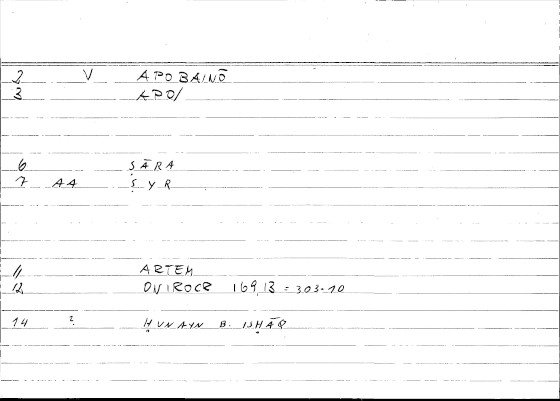 2 V APOBAINŌ
3 APO/
6 ṢĀRA
7 AA ṢYR
11 ARTEM
12 ONIROCR 169,13 = 303-10
14 ? ḤUNAYN B. ISḤĀQ